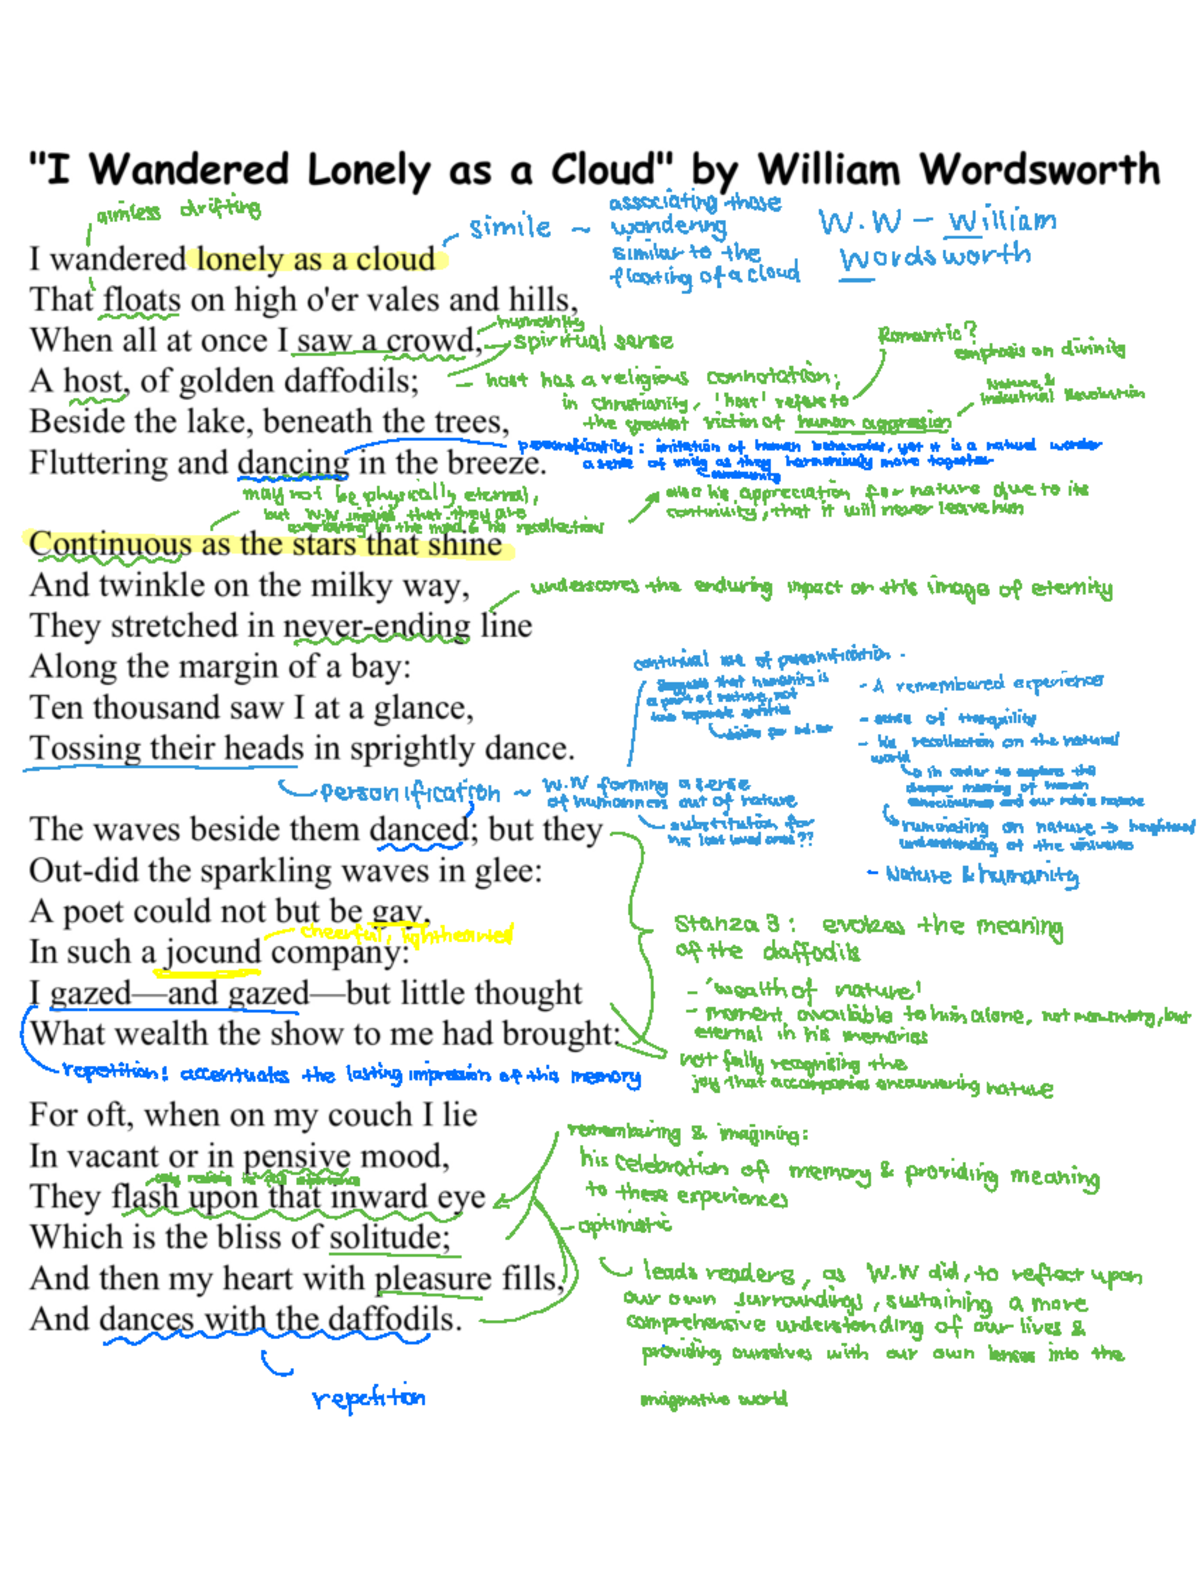 "I Wandered Lonely as a Cloud" by William Wordsworth
aimless drifting
simile ~ associating those
wondering
similar to the
floating of a cloud
W.W - William
Wordsworth
I wandered lonely as a cloud
That floats on high o'er vales and hills,
When all at once I saw a crowd,
humanity
spiritual sense
Romantic?
emphasis on divinity
A host, of golden daffodils;
- host has a religious connotation;
in Christianity, 'host' refers to
the greatest victim of human aggression
Nature &
Industrial Revolution
Beside the lake, beneath the trees,
Fluttering and dancing in the breeze.
personification: imitation of human behaviour, yet it is a natural wonder
a sense of unity as they harmoniously move together
community
may not be physically eternal,
but W.W implies that they are
everlasting in the mind & his recollections
also his appreciation for nature due to its
continuity, that it will never leave him
Continuous as the stars that shine
And twinkle on the milky way,
underscores the enduring impact on this image of eternity
They stretched in never-ending line
Along the margin of a bay:
Ten thousand saw I at a glance,
Tossing their heads in sprightly dance.
continual use of personification -
suggests that humanity is
a part of nature, not
two separate entities
- A remembered experience
- sense of tranquility
- his recollection on the natural
world
in order to explore the
deeper meaning of human
consciousness and our
ruminating on nature → heightened
understanding of the universe
- Nature & humanity
personification ~ W.W forming a sense
of humanness out of nature
substitution for
his lost loved ones??
The waves beside them danced; but they
Out-did the sparkling waves in glee:
A poet could not but be gay,
cheerful, lighthearted
In such a jocund company:
I gazed—and gazed—but little thought
What wealth the show to me had brought:
repetition! accentuates the lasting impression of this memory
Stanza 3: evokes the meaning
of the daffodils
- 'wealth of nature'
- moment available to him alone, not momentary, but
eternal in his memories
not fully recognising the
joy that accompanies encountering nature
For oft, when on my couch I lie
In vacant or in pensive mood,
They flash upon that inward eye
Which is the bliss of solitude;
And then my heart with pleasure fills,
And dances with the daffodils.
repetition
remembering & imagining:
his celebration of memory & providing meaning
to these experiences
- optimistic
leads readers, as W.W did, to reflect upon
our own surroundings, sustaining a more
comprehensive understanding of our lives &
providing ourselves with our own lenses into the
imaginative world